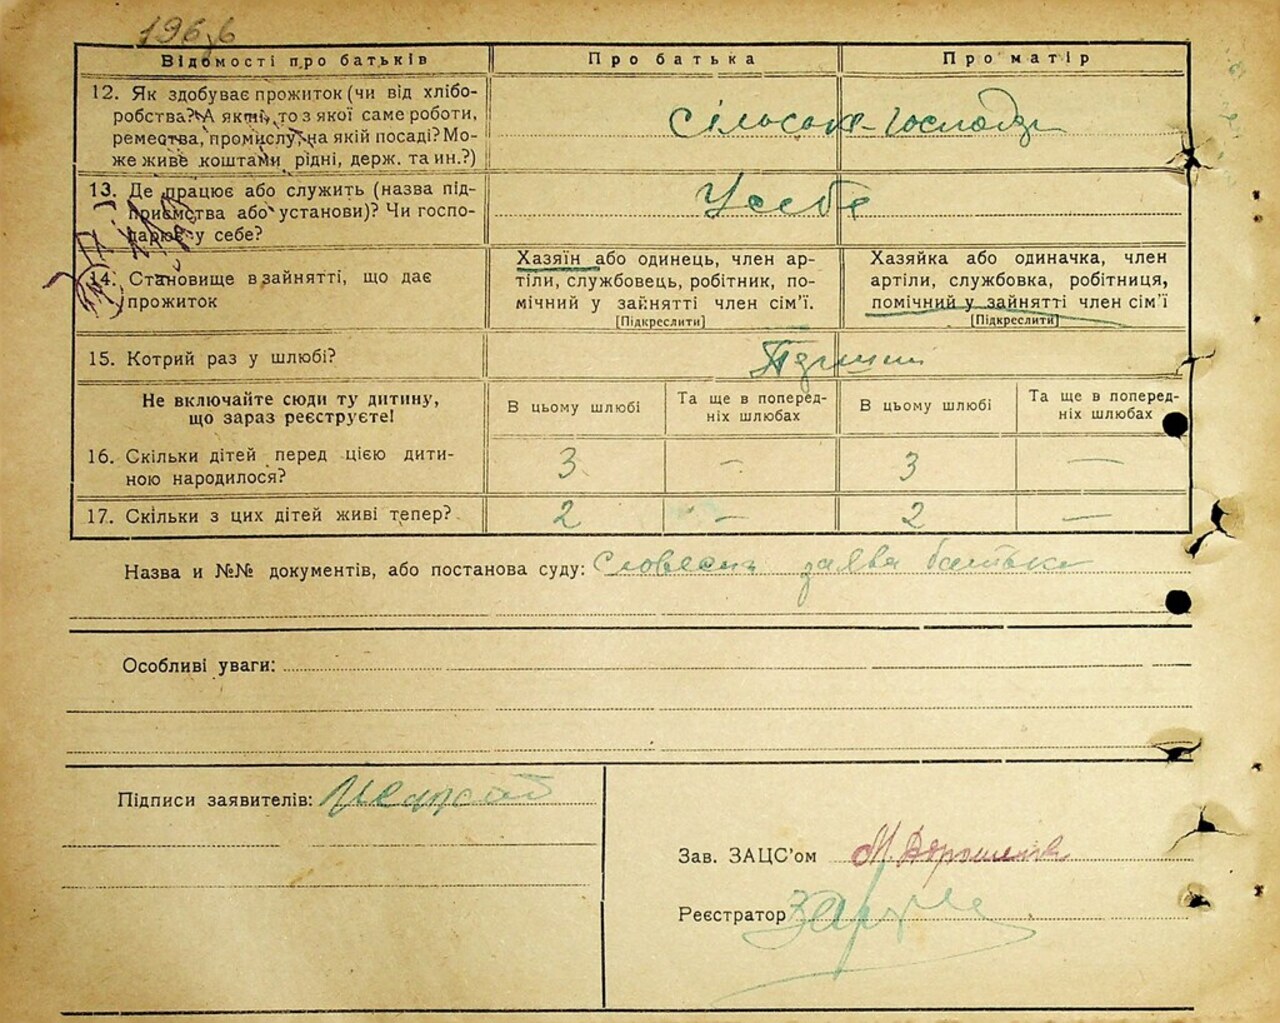 Відомості про батьків
Про батька
Про матір
12. Як здобуває прожиток (чи від хлібо-
робства? А як ні, то з якої саме роботи,
ремества, промислу, на якій посаді? Мо-
же живе коштами рідні, держ. та ин.?)
13. Де працює або служить (назва під-
приємства або установи)? Чи госпо-
дарює у себе?
У себе
14. Становище в зайнятті, що дає
прожиток
Хазяїн або одинець, член ар-
тіли, службовець, робітник, по-
мічний у зайнятті член сім'ї.
[Підкреслити]
Хазяйка або одиначка, член
артіли, службовка, робітниця,
помічний у зайнятті член сім'ї
[Підкреслити]
15. Котрий раз у шлюбі?
Не включайте сюди ту дитину,
що зараз реєструєте!
В цьому шлюбі
Та ще в поперед-
ніх шлюбах
В цьому шлюбі
Та ще в поперед-
ніх шлюбах
16. Скільки дітей перед цією дити-
ною народилося?
3 — 3 —
17. Скільки з цих дітей живі тепер?
2 — 2 —
Назва и №№ документів, або постанова суду: Словесна заява батька
Особливі уваги:
Підписи заявителів:
Зав. ЗАЦС'ом М. Дорошенко
Реєстратор